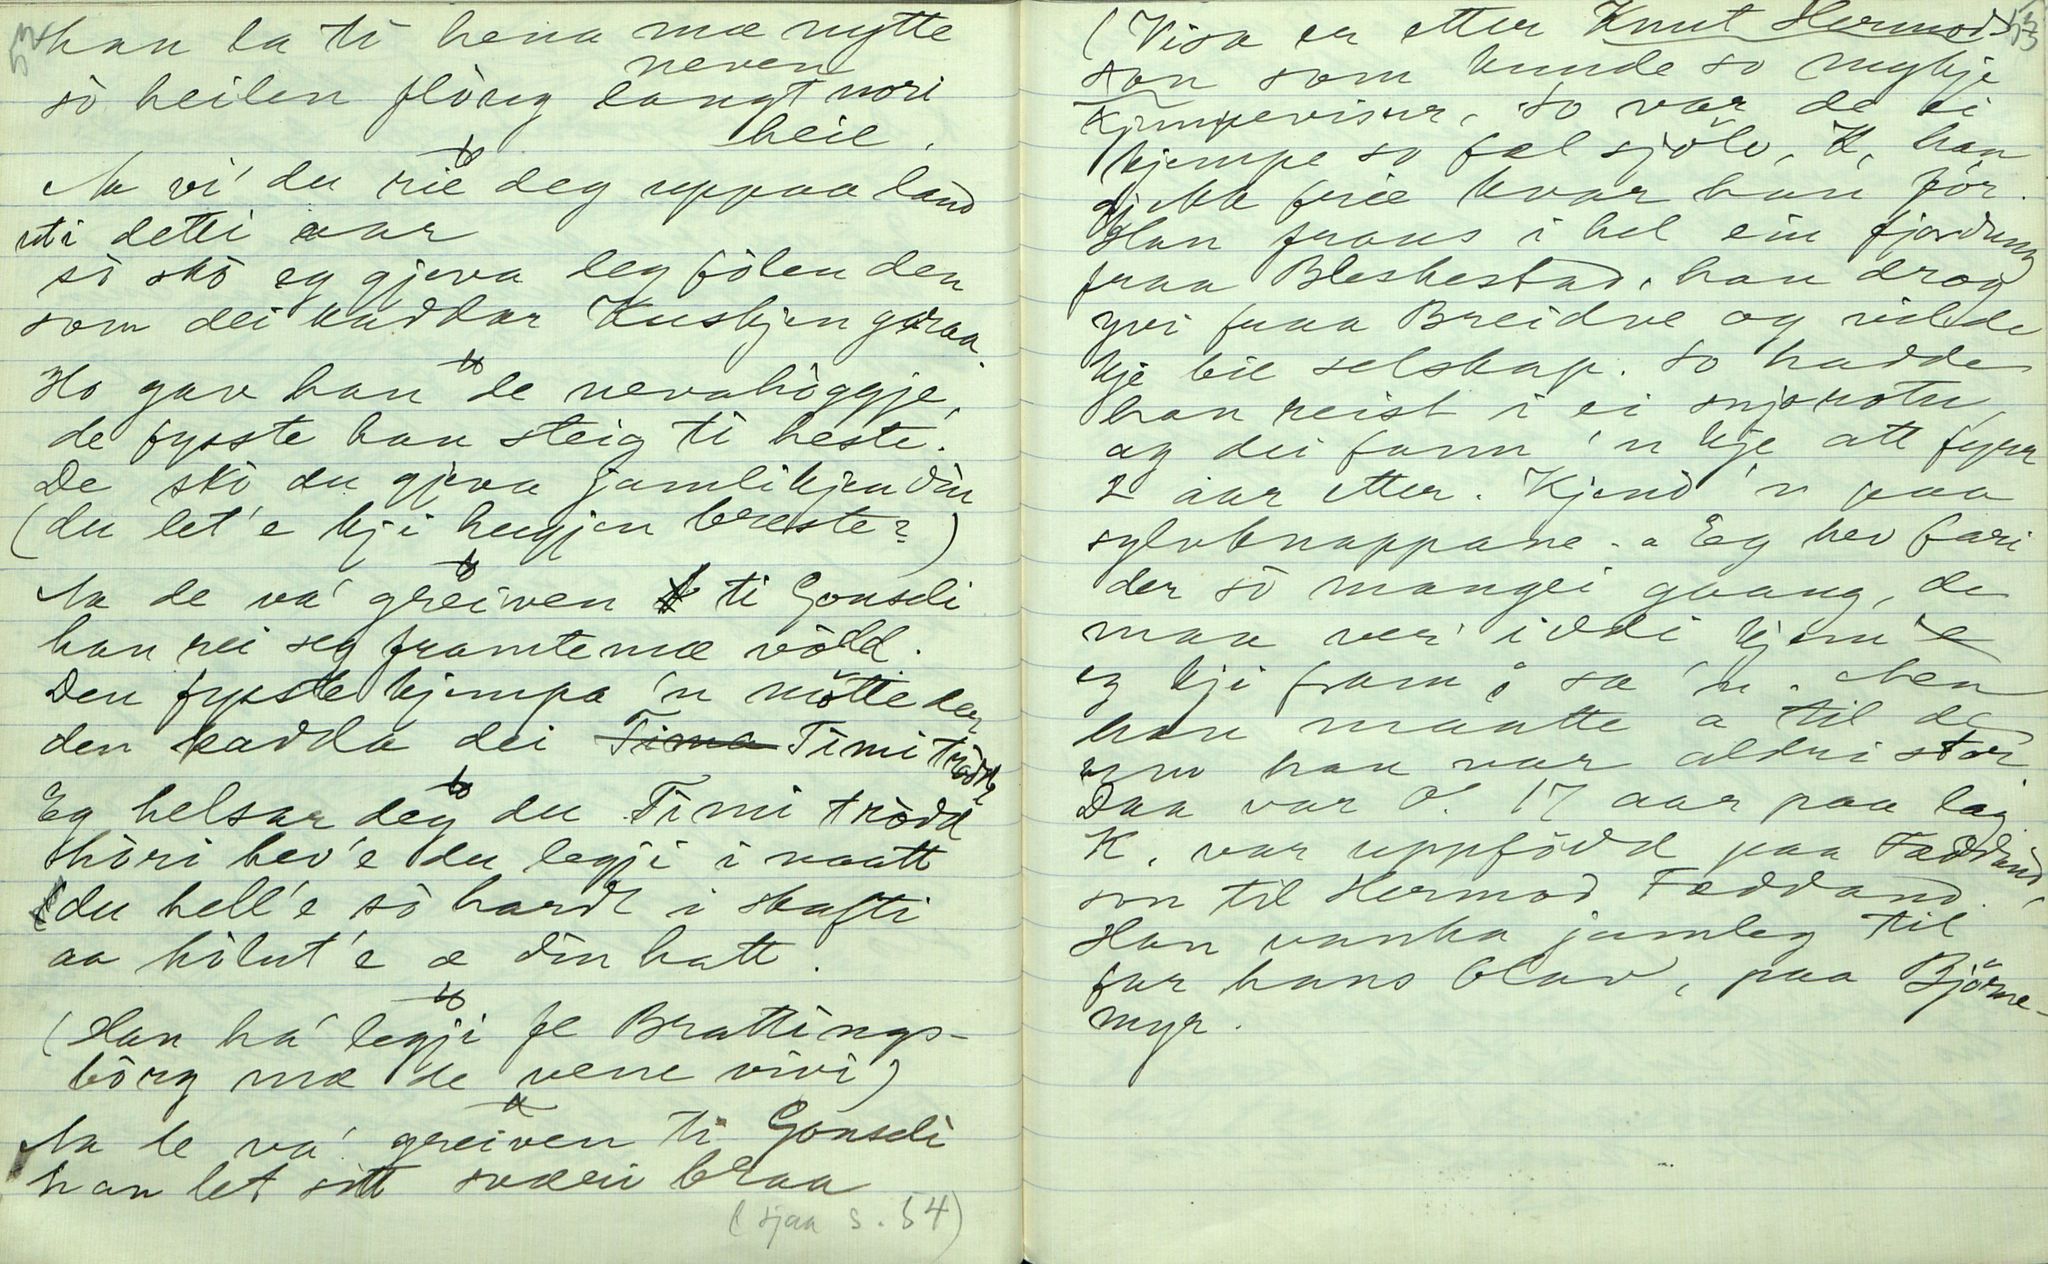 52
han la ti hena mæ nytte
neven
sò heilen flòug langt nori
heil.
Aa vi' du rie deg uppaa land
uti detti aar
sò skò eg gjeva deg fólen den
som dei kaddar Kuskjen graa.
Ho gav han de nevahòggje,
de fyste han steig ti heste.
De skò du gjeva gamlikjen din
(du let'e kji hugjen breste?)
Aa de va' greiven ti Gonseli
han rei seg framte mæ vòdd.
Den fyste kjempa 'n mötte der
den kadda dei Tima Timi tròdd
Eg helsar deg du Timi tròdd
hòri hev'e du legji i naatt
du hell'e sò hardt i skafti
aa hòlut'e æ din hatt.
(Han ha' legji fe Brattings-
bòrg mæ de vene viv)
Aa de va' greiven ti Gonseli
han let sitt sværi braa
(sjaa s. 54)
53
(Visa er etter Knut Hermods
son som kunde so mykje
Kjempevisur, so var de ei
kjempe so fæl sjölv, K, han
gjekk frie kvar han fór.
Han fraus i hel ein fjordung
fraa Bleskestad, han drog
yvi fraa Breidve og vilde
kje bie selskap. So hadde
han reist i ei snjoróta,
og dei fann 'n kje att fyrr
2 aar etter. Kjend 'n paa
sylvknappane. Eg hev fari
der sò mangei gaang, de
maa veri iddi kjem
eg kji fram, sa 'n. Men
han maatte a til de
um han var aldri stor
Daa var O. 17 aar paa lag
K. var uppfödd paa Faddand,
son til Hermod Faddand.
Han vanka jamleg til
far hans Olav, paa Björne-
myr.